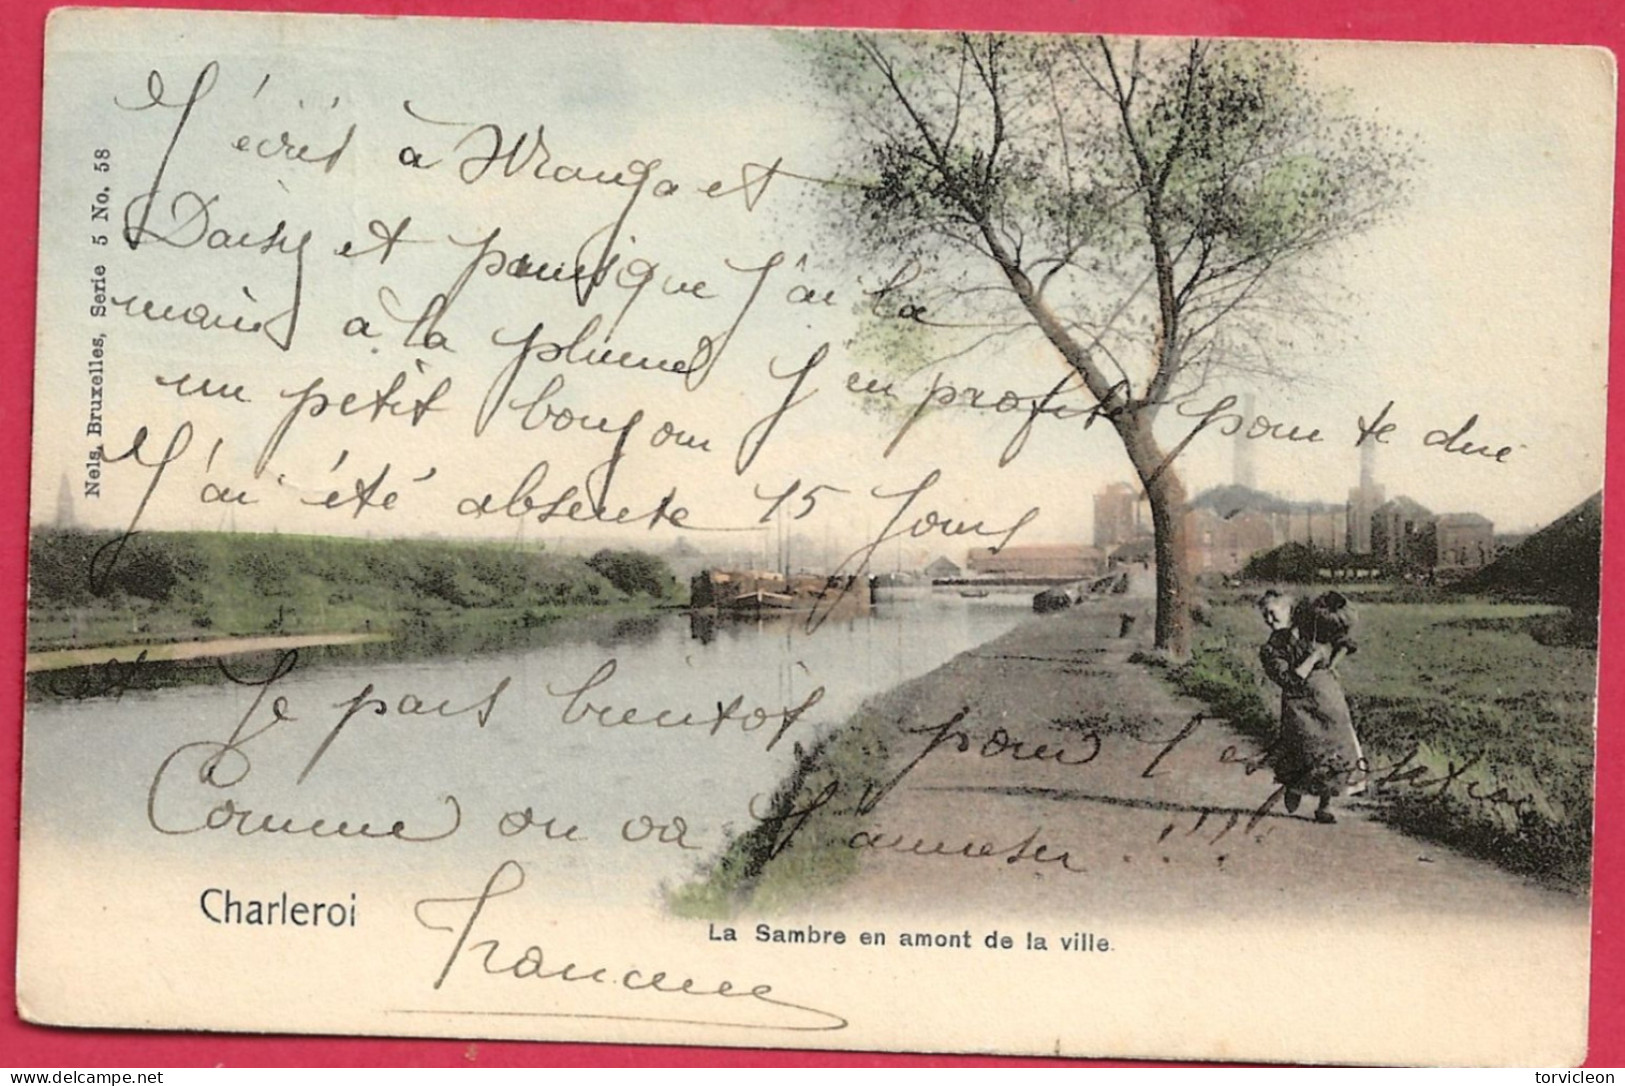 Nels, Bruxelles, Serie 5 No. 58
J'écris à Wranga et
Daisy et puisque j'ai la
main à la plume j'en profite pour te dire
un petit bonjour
J'ai été absente 15 jours
et je pars bientôt pour l'exposition
Comme on va s'amuser !!!!
Francine
Charleroi
La Sambre en amont de la ville.
torvicleon